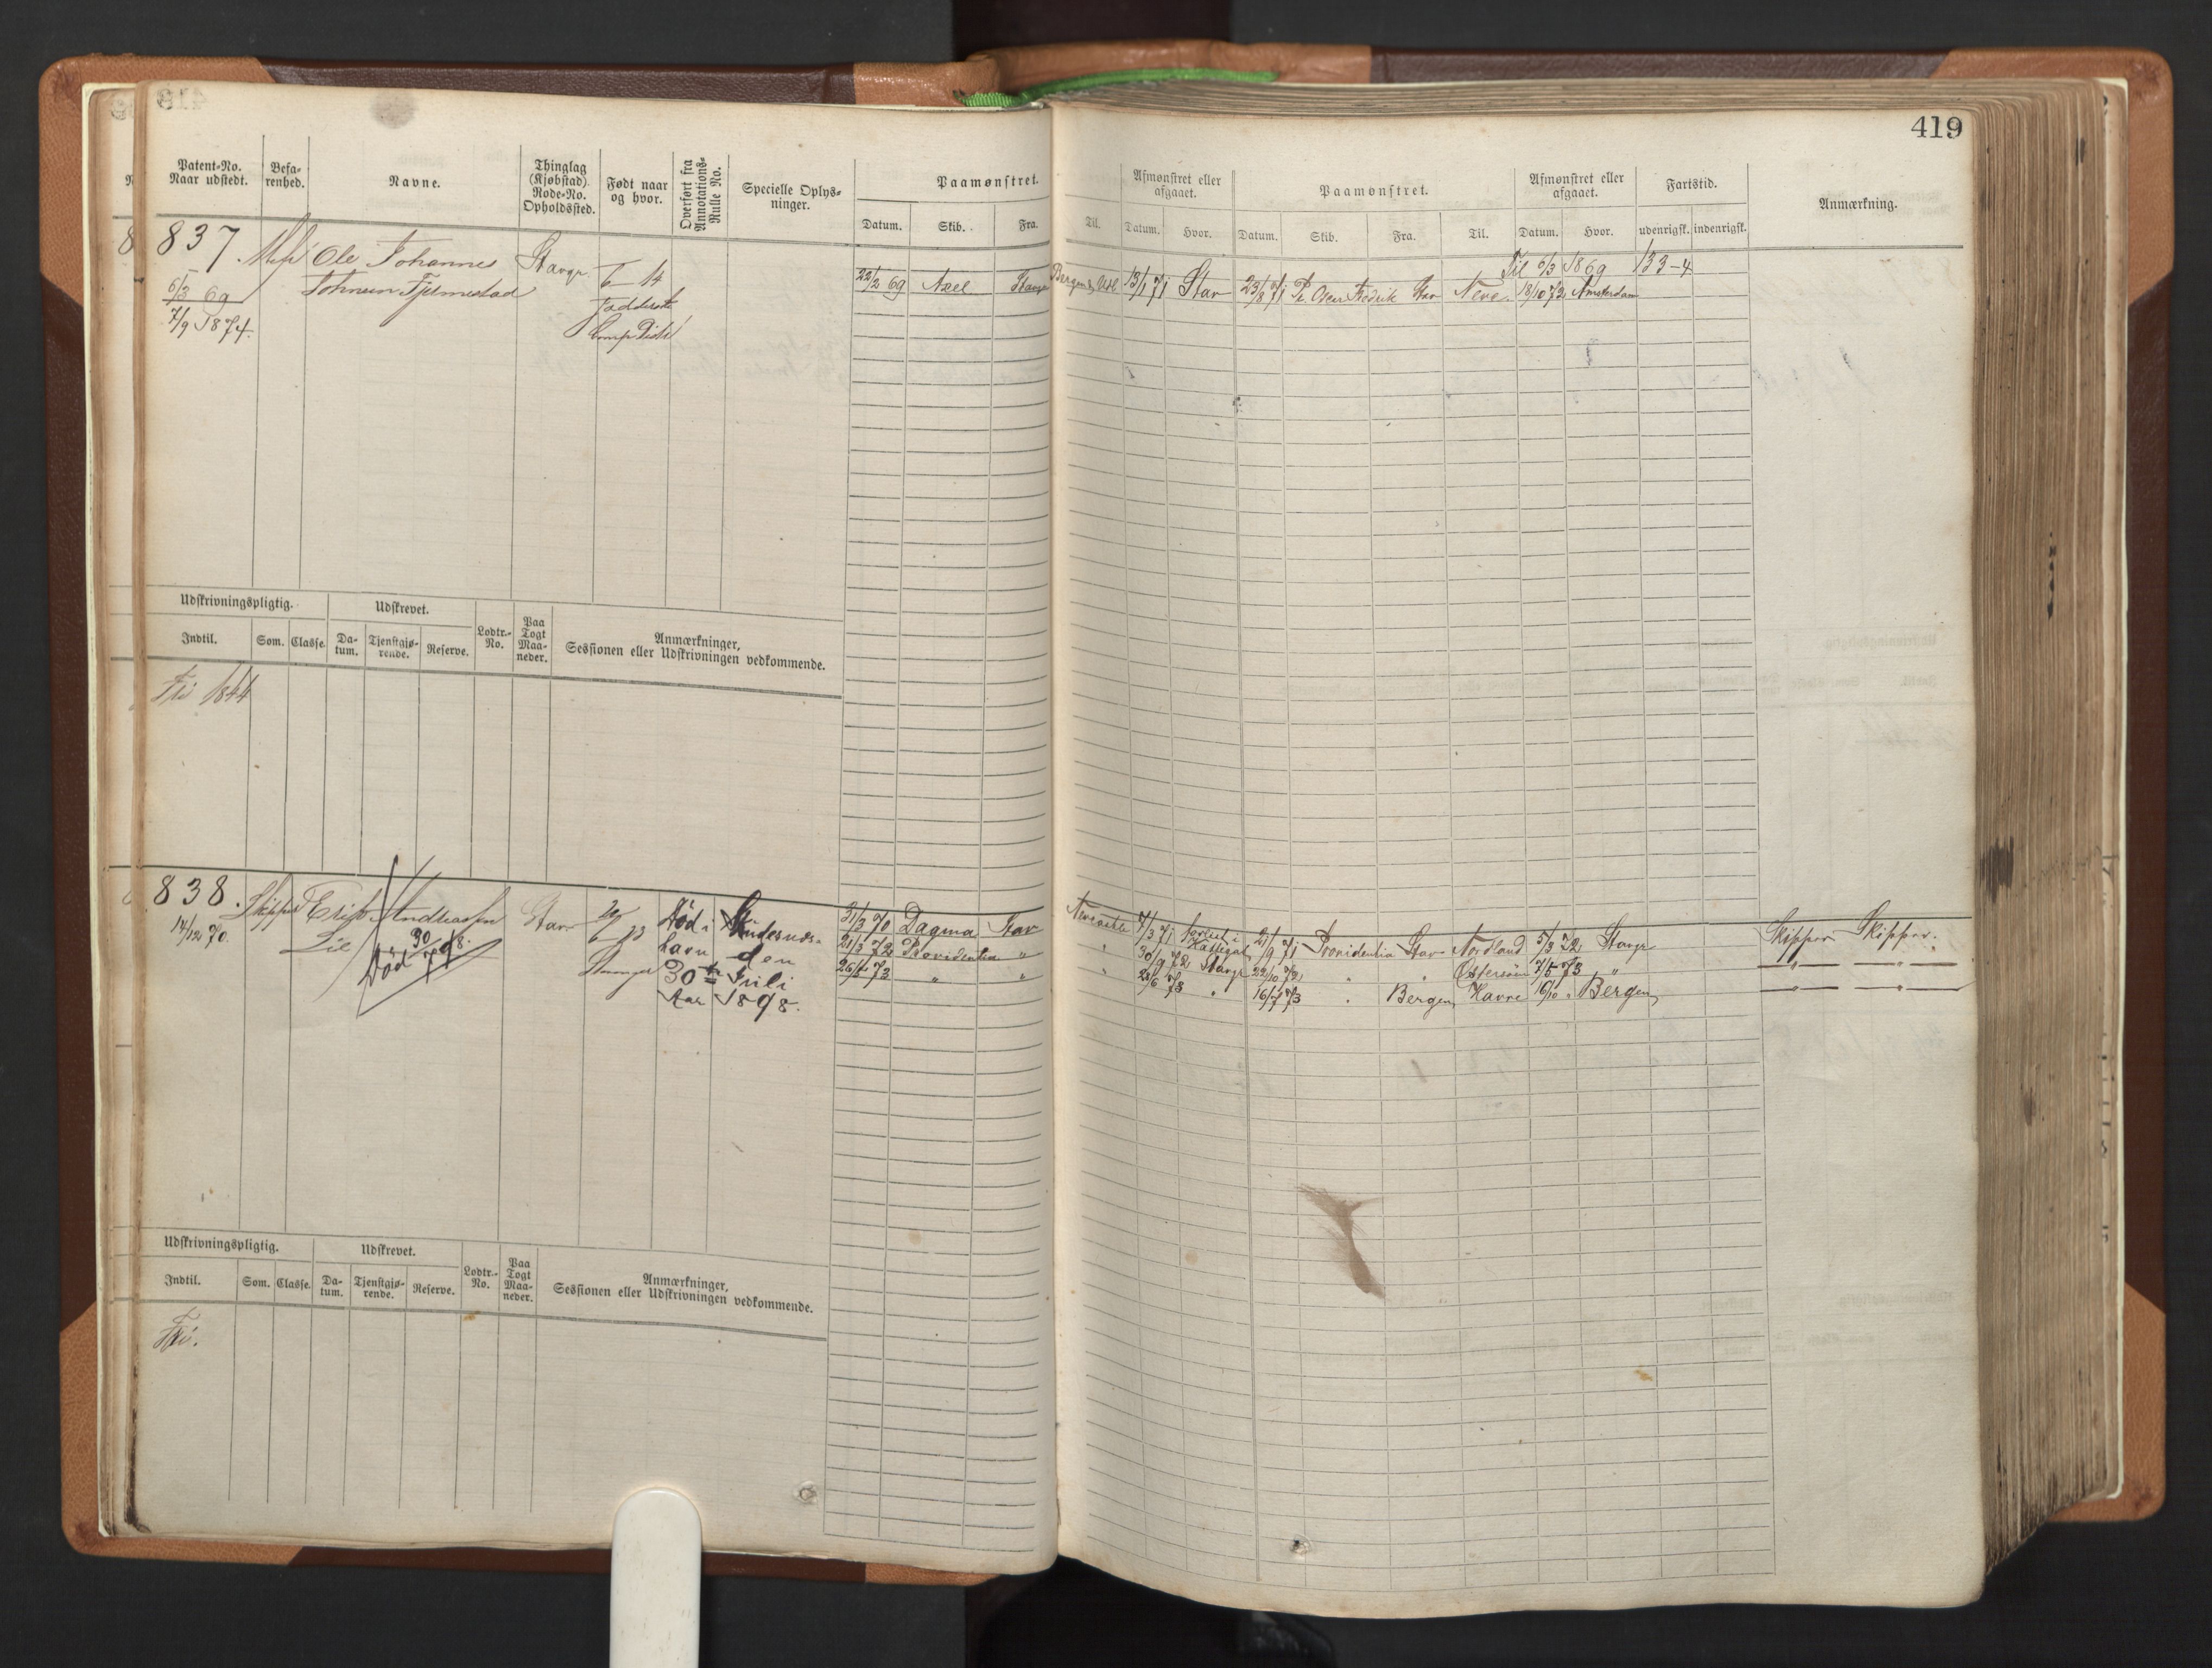 419
Patent-No. Naar udstedt.
Befarenhed.
Navne.
Thinglag (Kjøbstad) Rode-No. Opholdssted.
Født naar og hvor.
Overført fra Annotations-Rulle No.
Specielle Oplysninger.
Paamønstret.
Datum. Skib. Fra. Til.
Afmønstret eller afgaaet.
Datum. Hvor.
Paamønstret.
Datum. Skib. Fra. Til.
Afmønstret eller afgaaet.
Datum. Hvor.
Fartstid.
udenrigsk. indenrigsk.
Anmærkning.
837. Ole Johannes Stavgr
6/3 69
7/9 1874.
22/2 69 Axel Stavgr
13/1 71 Stav 23/8 71 Fredrik Stav Neve 18/10 72 Amsterdam
Til 6/3 1869 133-4
Udskrivningspligtig. Udskrevet. Lodtr.-No. Paa Togt Maaneder. Anmærkninger, Sessionen eller Udskrivningen vedkommende.
Indtil. Som. Classe. Datum. Tjenstgjørende. Reserve.
Fri 1844
838. Skipper Erik Andreassen Stav
14/12 70. Lie
Død 30/7 98.
Død i Skudesnæs-
havn den
30te Juli
Aar 1898.
Stavanger
31/3 70 Dagmar Stav
21/3 72 Providentia "
26/3 73 " "
7/3 71 Forliist i Kattegat 21/9 71 Providentia Stav Nordland 5/3 72 Stavgr Skipper Skipper.
" 30/9 72 Stavgr 22/10 72 " " Østersøen 7/5 73 "
" 28/6 73 " 16/7 73 " Bergen Havre 16/10 " Bergen
Udskrivningspligtig. Udskrevet. Lodtr.-No. Paa Togt Maaneder. Anmærkninger, Sessionen eller Udskrivningen vedkommende.
Indtil. Som. Classe. Datum. Tjenstgjørende. Reserve.
Fri.